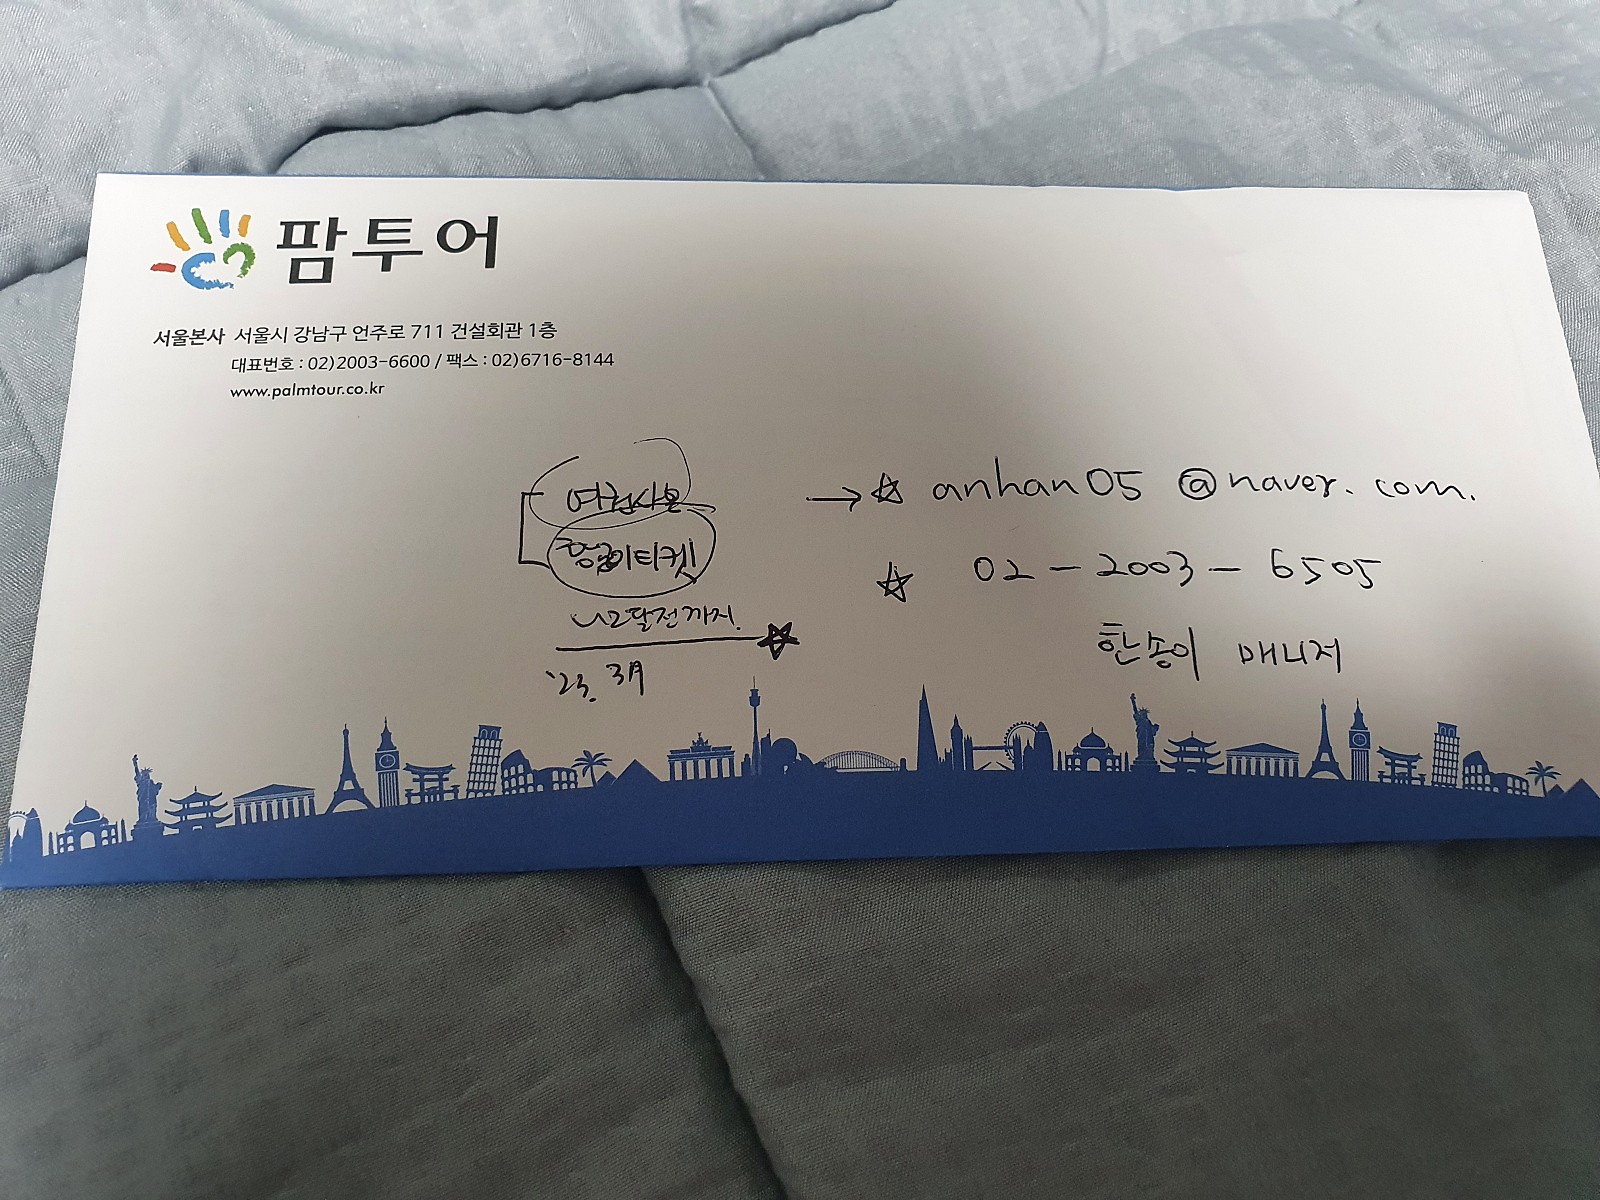 팜투어
서울본사 서울시 강남구 언주로 711 건설회관 1층
대표번호 : 02)2003-6600 / 팩스 : 02)6716-8144
www.palmtour.co.kr
여권사본
항공이티켓
2달전까지.
'23. 3月
→☆ anhan05@naver.com.
☆ 02-2003-6505
한송이 매니저